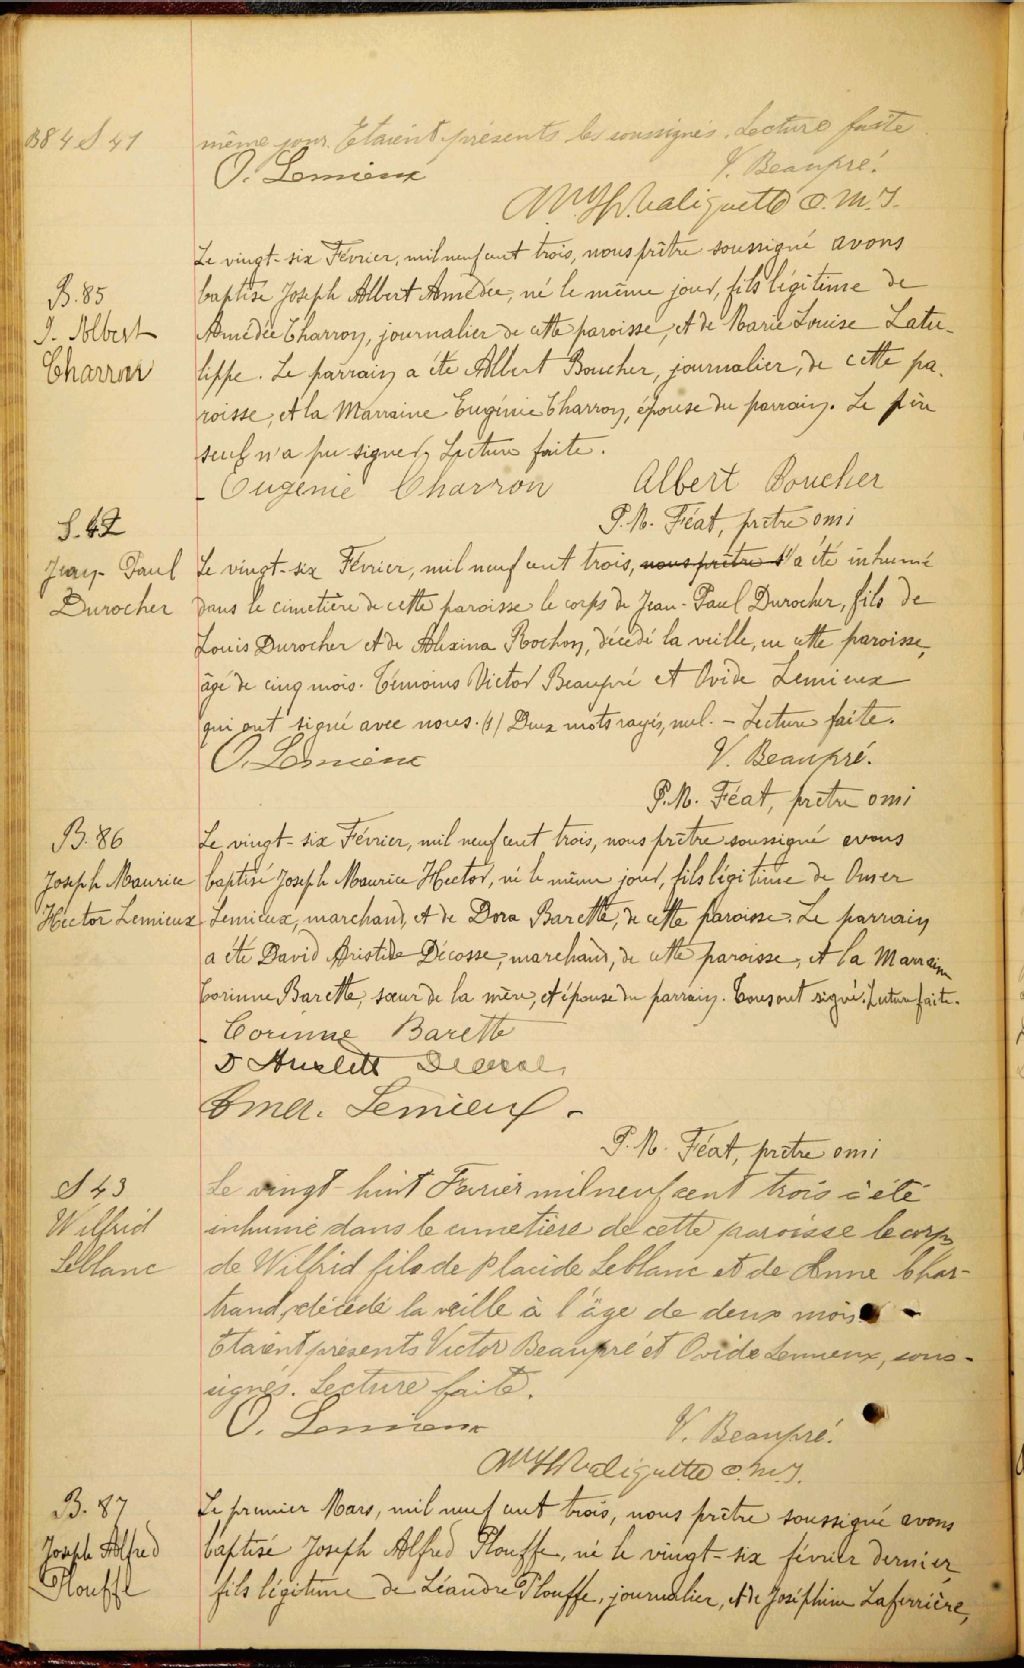 B84 S 41
même jour. Etaient présents les soussignés. Lecture faite
O. Lemieux
V. Beaupré.
Valiquette O.M.I.
B. 85
J. Albert
Charron
Le vingt-six Février, mil neuf cent trois, nous prêtre soussigné avons
baptisé Joseph Albert Amédée, né le même jour, fils légitime de
Amédée Charron, journalier de cette paroisse, et de Marie Louise Latu-
lippe. Le parrain a été Albert Boucher, journalier, de cette pa-
roisse, et la Marraine Eugénie Charron, épouse du parrain. Le père
seul n'a pu signer, Lecture faite.
Eugénie Charron
Albert Boucher
P.M. Féat, prêtre omi
S. 42
Jean-Paul
Durocher
Le vingt-six Février, mil neuf cent trois, nous prêtre (1) a été inhumé
dans le cimetière de cette paroisse le corps de Jean-Paul Durocher, fils de
Louis Durocher et de Alexina Rochon, décédé la veille, en cette paroisse,
âgé de cinq mois. Témoins Victor Beaupré et Ovide Lemieux
qui ont signé avec nous. (1) Deux mots rayés, nul. - Lecture faite.
O. Lemieux
V. Beaupré.
P.M. Féat, prêtre omi
B. 86
Joseph Maurice
Hector Lemieux
Le vingt-six Février, mil neuf cent trois, nous prêtre soussigné avons
baptisé Joseph Maurice Hector, né le même jour, fils légitime de Omer
Lemieux, marchand, et de Dora Barette, de cette paroisse. Le parrain
a été David Aristide Décosse, marchand, de cette paroisse, et la Marraine
Corinne Barette, sœur de la mère, et épouse du parrain. Tous ont signé. Lecture faite.
Corinne Barette
D
Omer. Lemieux
P.M. Féat, prêtre omi
S 43
Wilfrid
Leblanc
Le vingt-huit Février mil neuf cent trois a été
inhumé dans le cimetière de cette paroisse le corps
de Wilfrid fils de Placide Leblanc et de Anne Char-
trand, décédé la veille à l'âge de deux mois
Etaient présents Victor Beaupré et Ovide Lemieux, sous-
signés. Lecture faite.
O. Lemieux
V. Beaupré.
Valiquette O.M.I.
B. 87
Joseph Alfred
Plouffe
Le premier Mars, mil neuf cent trois, nous prêtre soussigné avons
baptisé Joseph Alfred Plouffe, né le vingt-six février dernier
fils légitime de Léandre Plouffe, journalier, et de Joséphine Laferrière,